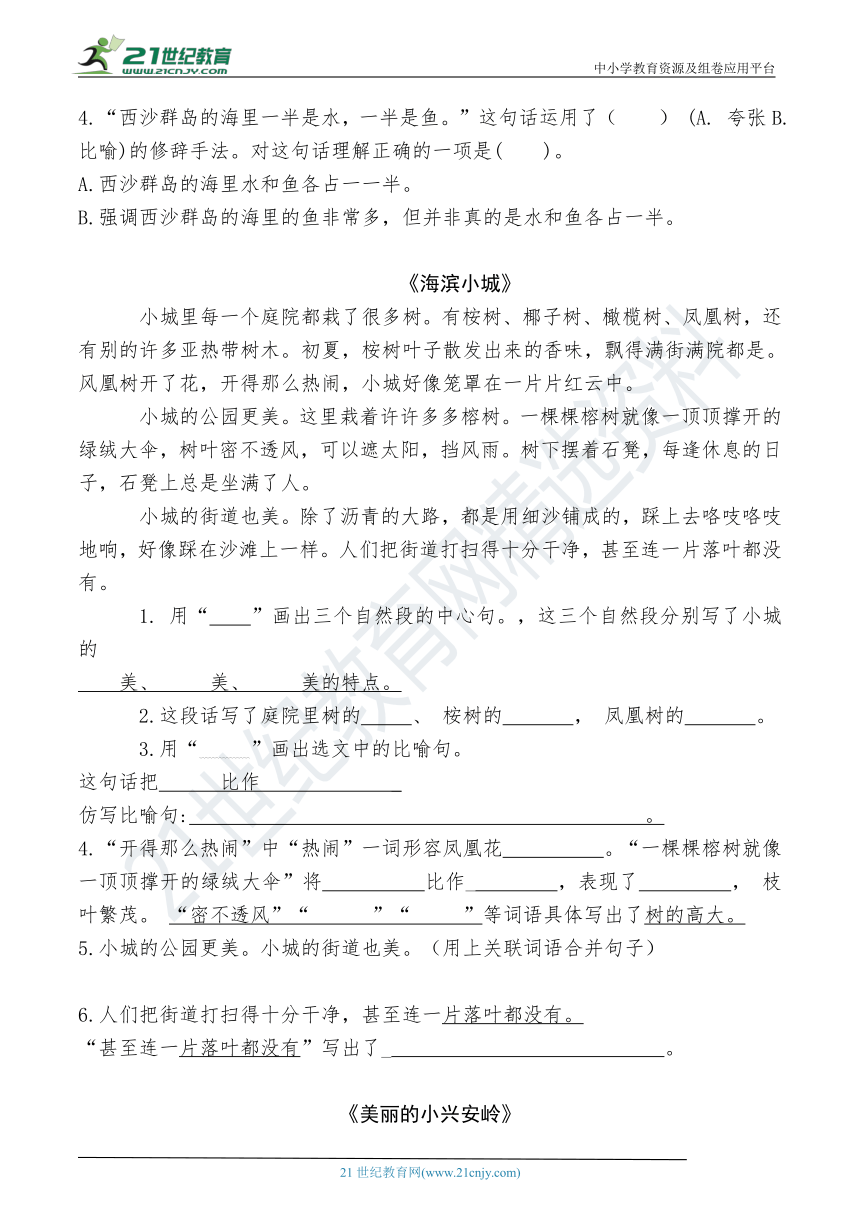 21世纪教育
WWW.21CNJY.COM
中小学教育资源及组卷应用平台
4.“西沙群岛的海里一半是水,一半是鱼。”这句话运用了(    ) (A. 夸张B.
比喻)的修辞手法。对这句话理解正确的一项是(    )。
A.西沙群岛的海里水和鱼各占一一半。
B.强调西沙群岛的海里的鱼非常多,但并非真的是水和鱼各占一半。
《海滨小城》
小城里每一个庭院都栽了很多树。有桉树、椰子树、橄榄树、凤凰树,还
有别的许多亚热带树木。初夏,桉树叶子散发出来的香味,飘得满街满院都是。
凤凰树开了花,开得那么热闹,小城好像笼罩在一片片红云中。
小城的公园更美。这里栽着许许多多榕树。一棵棵榕树就像一顶顶撑开的
绿绒大伞,树叶密不透风,可以遮太阳,挡风雨。树下摆着石凳,每逢休息的日
子,石凳上总是坐满了人。
小城的街道也美。除了沥青的大路,都是用细沙铺成的,踩上去咯吱咯吱
地响,好像踩在沙滩上一样。人们把街道打扫得十分干净,甚至连一片落叶都没
有。
1. 用“____”画出三个自然段的中心句。,这三个自然段分别写了小城
的
____美、____美、____美的特点。
2.这段话写了庭院里树的_____、 桉树的_______, 凤凰树的_______。
3.用“_____”画出选文中的比喻句。
这句话把______比作______________
仿写比喻句:______________________________________________。
4.“开得那么热闹”中“热闹”一词形容凤凰花__________。“一棵棵榕树就像
一顶顶撑开的绿绒大伞”将__________比作_________,表现了_________, 枝
叶繁茂。 “密不透风”“______”“_____”等词语具体写出了树的高大。
5.小城的公园更美。小城的街道也美。(用上关联词语合并句子)
6.人们把街道打扫得十分干净,甚至连一片落叶都没有。
“甚至连一片落叶都没有”写出了____________________________。
《美丽的小兴安岭》
21世纪教育网(www.21cnjy.com)
21世纪教育网精选资料